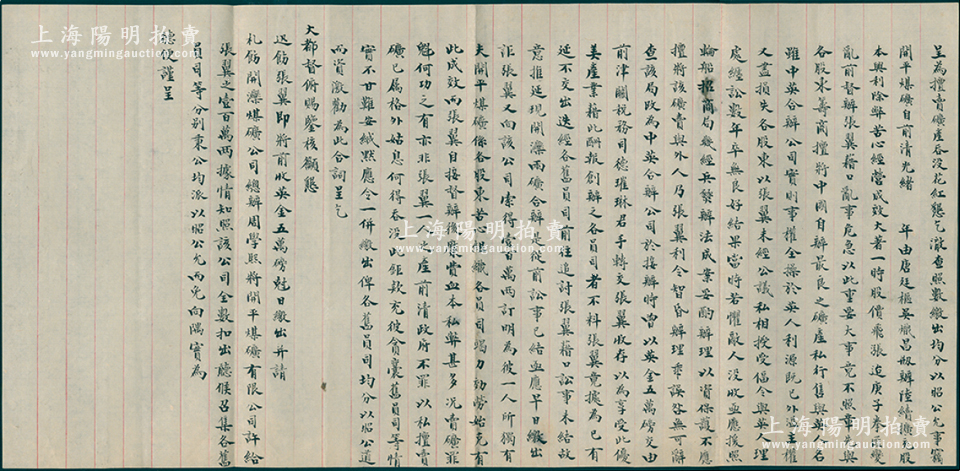 呈為擅賣礦產吞沒花紅懇乞澈查照數繳出均分以昭公允事竊
開平煤礦自前清光緒 年由唐廷樞吳熾昌招辦陸續集股
本興利除弊苦心經營成效大著一時股價飛張迨庚子拳匪變
亂前督辦張翼藉口亂事危急以此重要大事竟不照章與
各股東籌商擅將中國自辦最良之礦產私行售與英人名
雖中英合辦公司實則事權全操於英人利源既已外溢主權
又盡損失各股東以張翼未經公議私相授受倡令與英人理
處纏訟數年卒無良好結果當時若懼敵人沒收亦應援照
輪船招商局幾經兵燹辦法成案妥酌辦理以資保護不應
擅將該礦賣與外人乃張翼利令智昏辦理乖謬咎無可辭
查該局改為中英合辦公司於接辦時曾以英金五萬磅交由
前津關稅務司德璀琳君手轉交張翼收存以為享受此優
美產業藉此酬報創辦之各員司者不料張翼竟據為己有
延不交出迭經各舊員司前往追討張翼藉口訟事未結故
意推延現開灤兩礦合辦是從前訟事已結亟應早日繳出
詎張翼又向該公司索得壹百萬兩訂明為彼一人所獨有
夫開平煤礦係各股東苦心組織各員司竭力勤勞始克有
此成效而張翼自接督辦後虧賣血本私弊甚多況賣礦罪
魁何功之有亦非張翼一人之產前清政府不罪以私擅賣
礦已屬格外姑息何得吞沒此鉅款充彼貪囊舊員司等情
實不甘難安緘默應令一併繳出俾各舊員司均分以昭公道
而資激勸為此合詞呈乞
大都督俯賜鑒核籲懇
迅飭張翼即將前收英金五萬磅尅日繳出并請
札飭開灤煤礦公司總辦周學熙將開平煤礦有限公司許給
張翼之壹百萬兩據情知照該公司全數扣出聽候召集各舊
員司等分別秉公均派以昭公允而免向隅實為
德便謹呈
上海陽明拍賣
www.yangmingauction.com
上海陽明拍賣
www.yangmingauction.com
上海陽明拍賣
www.yangmingauction.com
上海陽明拍賣
www.yangmingauction.com